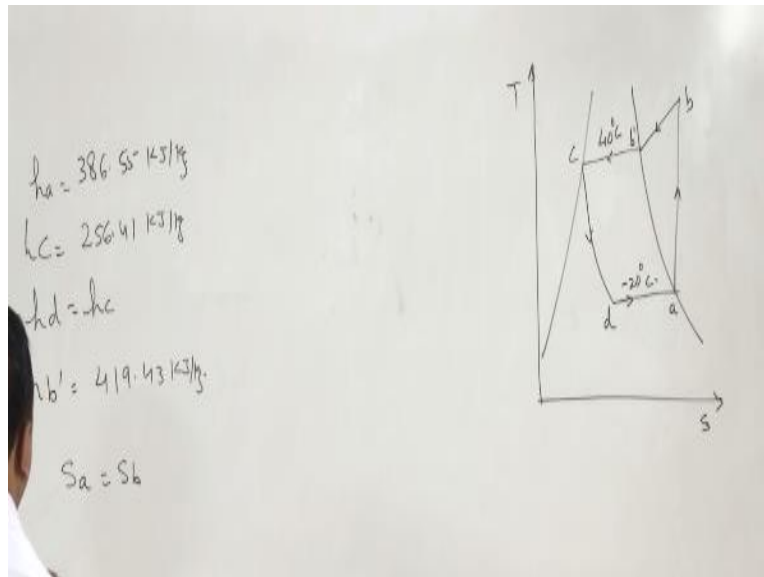 ha = 386.55 KJ/kg
hc = 256.41 KJ/kg
hd = hc
hb' = 419.43 KJ/kg.
Sa = Sb
T
b
40°C b'
c
-20°C.
d
a
S